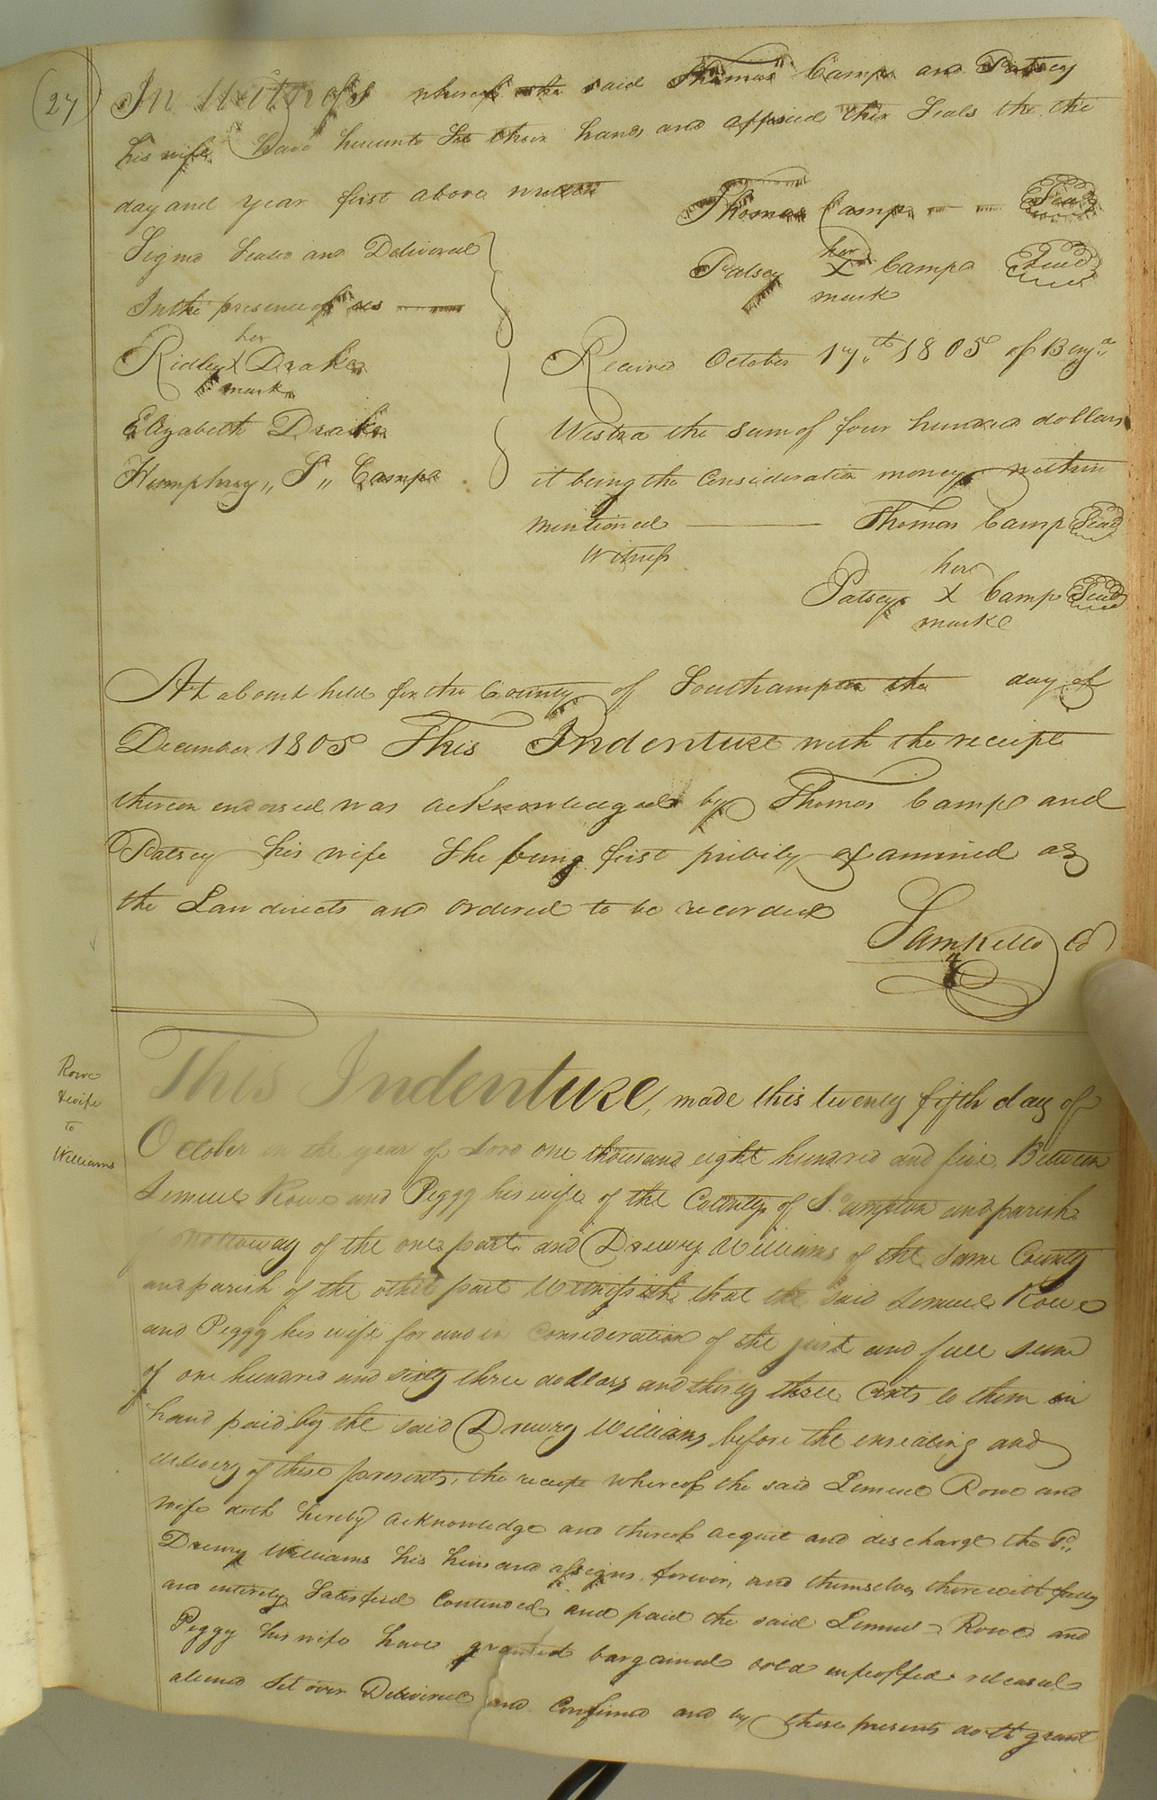 (27)
In Witness whereof the said Thomas Camp and Patsey
his wife have hereunto Set their hands and affixed their Seals the the
day and year first above
Thomas Camp — — Seal
Signd Sealed and Delivered
her
Patsey X Camp Seal
mark
In the presence of us ——
her
Ridley X Drake
mark
Elizabeth Drake
Humphrey „ S „ Camp
Received October 17,th 1805 of Benj.a
Westra the sum of four hundred dollars
it being the Consideration money within
mentioned ——— Thomas Camp Seal
Witness
her
Patsey X Camp Seal
mark
At a Court held for the County of Southampton the day of
December 1805 This Indenture with the receipt
thereon endorsed was acknowledged by Thomas Camp and
Patsey his wife She being first privily examined as
the Law directs and ordered to be recorded
Sam Kello
Rowe
& wife
to
Williams
This Indenture, made this twenty fifth day of
October in the year of Lord one thousand eight hundred and five Between
Lemuel Rowe and Peggy his wife of the County of S.ampton and parish
Nottoway of the one part and Drewry Williams of the Same County
and parish of the other part Witnesseth that the said Lemuel Rowe
and Peggy his wife for and in Consideration of the just and full sum
of one hundred and sixty three dollars and thirty three Cents to them in
hand paid by the said Drewry Williams before the ensealing and
delivery of these presents, the receipt whereof the said Lemuel Rowe and
wife doth hereby acknowledge and thereof acquit and discharge the sd.
Drewry Williams his heirs and assigns forever, and themselves therewith fully
and entirely Satisfied Contented and paid the said Lemuel Rowe and
Peggy his wife have granted bargained sold enfeoffed released
aliened Set over Delivered and Confirmed and by these presents doth grant